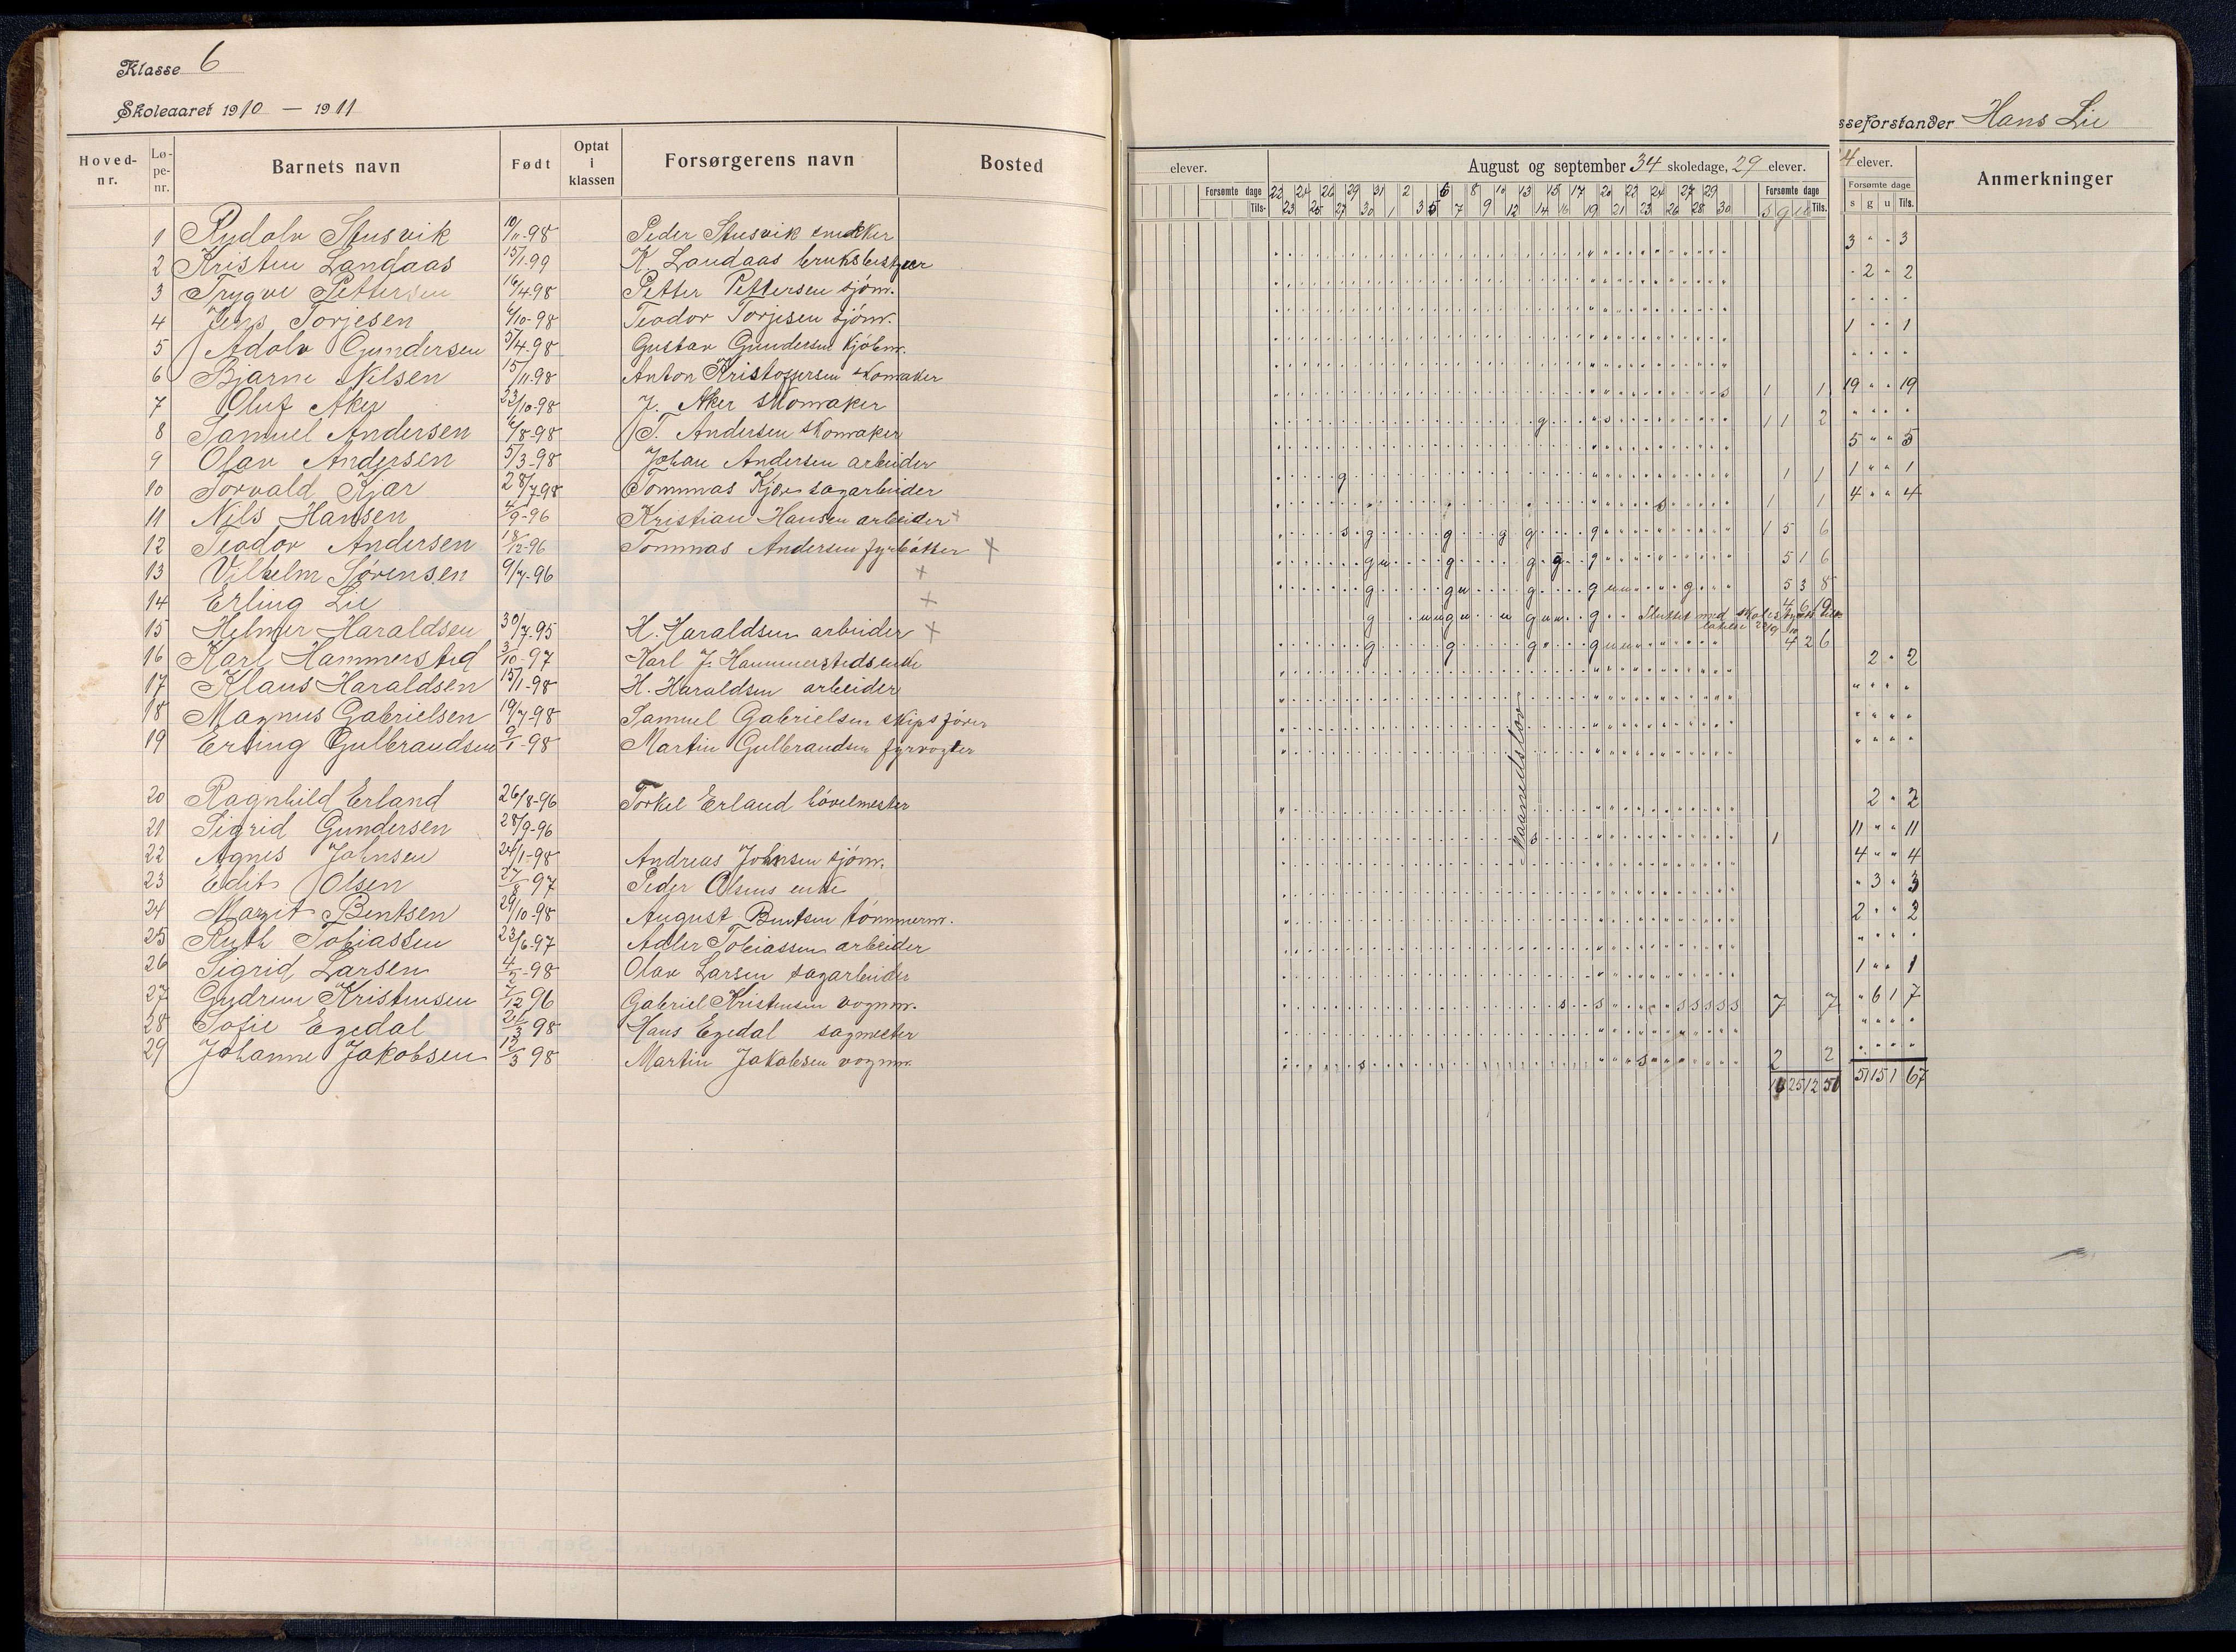 Klasse 6
Skoleaaret 1910 — 1911
Hoved-nr. Lø-pe-nr. Barnets navn Født Optat i klassen Forsørgerens navn Bosted
1 Rudolv Stusvik 10/11-98 Peder Stusvik snekker
2 Kristen Landaas 15/1-99 K. Landaas bruksbestyrer
3 Trygve Pettersen 16/4-98 Petter Pettersen sjøm.
4 Jens Torjesen 6/10-98 Teodor Torjesen sjøm.
5 Adolv Gundersen 5/4-98 Gustav Gundersen kjøbm.
6 Bjarne Nilsen 15/11-98 Anton Kristoffersen skomaker
7 Oluf Aker 23/10-98 J. Aker skomaker
8 Samuel Andersen 6/8-98 T. Andersen skomaker
9 Olav Andersen 5/3-98 Johan Andersen arbeider
10 Torvald Kjær 28/7-98 Tommas Kjær sagarbeider
11 Nils Hansen 4/9-96 Kristian Hansen arbeider +
12 Teodor Andersen 18/12-96 Tommas Andersen fyrbøter +
13 Vilhelm Sørensen 9/7-96 +
14 Erling Lie +
15 Helmer Haraldsen 30/7-95 H. Haraldsen arbeider +
16 Karl Hammersted 3/10-97 Karl J. Hammersteds enke
17 Klaus Haraldsen 15/1-98 H. Haraldsen arbeider
18 Magnus Gabrielsen 19/7-98 Samuel Gabrielsen skipsfører
19 Erling Gulbrandsen 9/1-98 Martin Gulbrandsen fyrvogter
20 Ragnhild Erland 26/8-96 Torkel Erland høvelmester
21 Sigrid Gundersen 28/9-96
22 Agnes Johnsen 24/1-98 Andreas Johnsen sjøm.
23 Edit Olsen 27/8 97 Peder Olsens enke
24 Margit Bentsen 29/10-98 August Bentsen tømmerm.
25 Ruth Tobiassen 23/6-97 Adler Tobiassen arbeider
26 Sigrid Larsen 4/5-98 Olav Larsen sagarbeider
27 Gudrun Kristensen 7/12 96 Gabriel Kristensen vognm.
28 Sofie Egedal 21/3 98 Hans Egedal sagmester
29 Johanne Jakobsen 12/3 98 Martin Jakobsen vognm.
elever. August og september 34 skoledage, 29 elever.
Forsømte dage Tils.
22 24 26 29 31 2 6 8 10 13 15 17 20 22 24 27 29
23 25 27 30 1 3 5 7 9 12 14 16 19 21 23 26 28 30
Forsømte dage s g u Tils.
s 1 1
g s 1 1 2
g 1 1
s 1 1
s g g g g g 1 5 6
g u g g g g 5 1 6
g g u g g u u g 5 3 8
g u u g u u g u u g Sluttet med skolestyrets til-latelse 22/9 10 4 6
g g g u g u u 4 2 6
Maanedslov
s 1
s s s s s s s 7 7
s s 2 2
25 12
sseforstander Hans Lie
4 elever.
Forsømte dage s g u Tils.
Anmerkninger
3 " " 3
" 2 " 2
" " " "
1 " " 1
" " " "
19 " " 19
" " " "
5 " " 5
1 " " 1
4 " " 4
2 " 2
" " " "
" " " "
" " " "
2 " 2
11 " " 11
4 " " 4
" 3 " 3
2 " " 2
" " " "
1 " " 1
" 6 1 7
" " " "
" " " "
51 15 1 67